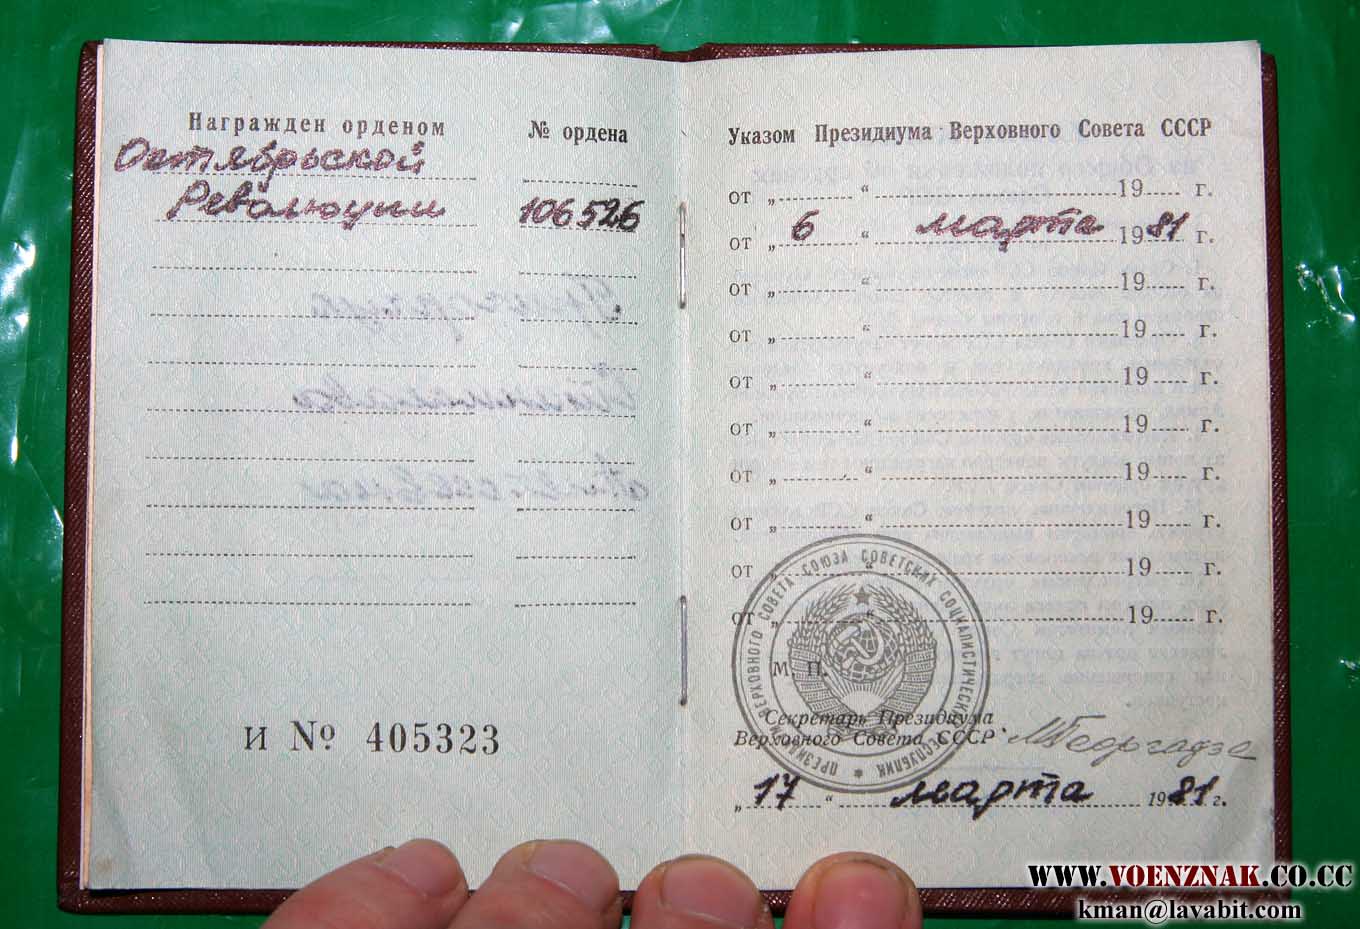 Награжден орденом № ордена
Октябрьской
Революции 106526
И № 405323
Указом Президиума Верховного Совета СССР
от „ “ 19 г.
от „ 6 “ марта 1981 г.
от „ “ 19 г.
от „ “ 19 г.
от „ “ 19 г.
от „ “ 19 г.
от „ “ 19 г.
от „ “ 19 г.
от „ “ 19 г.
от „ “ 19 г.
М. П.
ПРЕЗИДИУМ ВЕРХОВНОГО СОВЕТА СОЮЗА СОВЕТСКИХ СОЦИАЛИСТИЧЕСКИХ РЕСПУБЛИК
Секретарь Президиума
Верховного Совета СССР МГеоргадзе
„ 17 “ марта 1981 г.
WWW.VOENZNAK.CO.CC
kman@lavabit.com